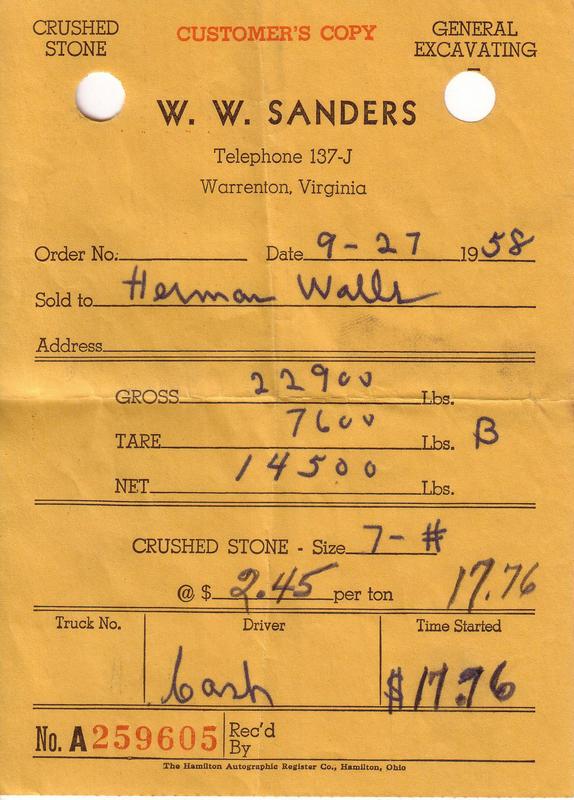 CRUSHED STONE
CUSTOMER'S COPY
GENERAL EXCAVATING
W. W. SANDERS
Telephone 137-J
Warrenton, Virginia
Order No. Date 9-27 1958
Sold to Herman Walls
Address
GROSS 22900 Lbs.
TARE 7600 Lbs. B
NET 14500 Lbs.
CRUSHED STONE - Size 7-#
@ $ 2.45 per ton 17.76
Truck No. Driver Time Started
Cash $17.76
No. A259605 Rec'd By
The Hamilton Autographic Register Co., Hamilton, Ohio